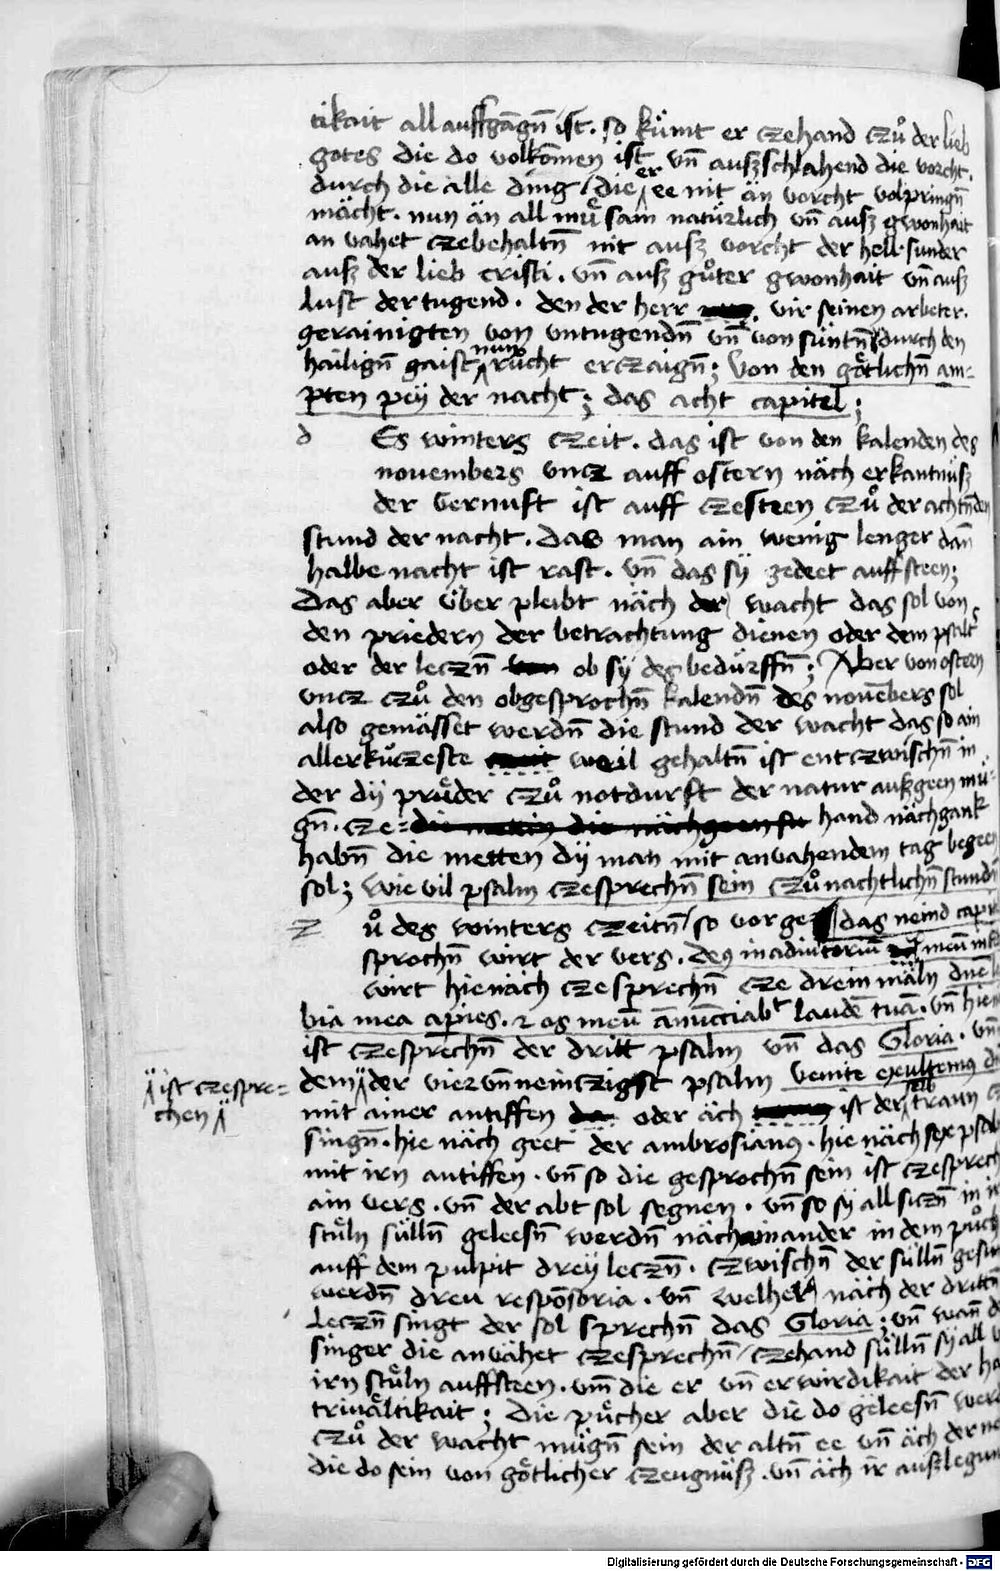 tikait all auffgāgn̄ ist. so kümt er czehand czů der lieb
gotes die do volkōmen ist vn̄ außschlahend die vorcht.
durch die alle ding / die er ee nit än vorcht volpringn̄
mächt. nun än all mu̇̈sam natürlich vn̄ auß gwonhait
an vahet czebehaltn̄ nit auß vorcht der hell. sunder
auß der lieb cristi. vn̄ auß gůter gwonhait vn̄ auß
lust der tugend. den der herr vir seinen arbeter.
gerainigten von vntugendn̄ vn̄ von süntn̄ durch den
hailign̄ gaist nun růcht erczaign̄; Von den götlichn̄ am=
pten pey der nacht; das acht capitel;
d Es winters czeit. das ist von den kalenden des
novembers vncz auff ostern näch erkantnüß
der vernuft ist auff czesteen czů der achtn̄den
stund der nacht. Das man ain wenig lenger dan̄
halbe nacht ist rast. vn̄ das sÿ gedeet auffsteen;
Das aber über pleibt näch der wacht das sol von
den priedern der betrachtung dienen oder dem psalt
oder der leczn̄ ob sÿ des bedürffn̄; Aber von ostern
vncz czů den obgesprochn̄ kalendn̄ des novēbers sol
also gemässet werdn̄ die stund der wacht das so ain
allerkürczeste weil gehaltn̄ ist entczwischn̄ in
der dÿ prüder czů notdurft der natur außgeen mü=
gn̄. cze= hand nächgank
habn̄ die metten dÿ man mit anvahendem tag begeen
sol; wie vil psalm czesprechn̄ sein czů nachtlichn̄ stundn̄
Z ů des winters czeitn̄ / so vorge= das neind capi
sprochn̄ wirt der vers. deꝰ in adiutoriū meū
wirt hienäch czesprechn̄ cze drein mäln dn̄e
bia mea apies. ⁊ os meū an̄ūcciabt laudē tuā. vn̄
ist czesprechn̄ der dritt psalm vn̄ das Gloria. vn̄
dem der viervn̄neinczigist psalm venite exultemus
ist czespre=
chen
mit ainer antiffen oder äch ist der selb traun
singn̄. hie näch geet der ambrosianꝰ. hie näch sex psal
mit irn antiffen. vn̄ so die gesprochn̄ sein ist czesprech
ain vers. vn̄ der abt sol segnen. vn̄ so sÿ all siczn̄ in
stüln sülln̄ geleesn̄ werdn̄ näch ainander in dem půch
auff dem pulpit drey leczn̄. czwischn̄ der sülln̄
werdn̄ dreu respōsoria. vn̄ welher näch der dritt
leczn̄ singt der sol sprechn̄ das Gloria; vn̄ wan̄
singer die anvähet czesprechn̄ / czehand sülln̄ sÿ all
irn stüln auffsteen. vm̄ die er vn̄ erwirdikait der
trivältikait; Die pücher aber die do geleesn̄
czů der wacht mügn̄ sein der altn̄ ee vn̄ äch der
die do sein von götlicher czeugnüß. vn̄ äch ir außlegun
Digitalisierung gefördert durch die Deutsche Forschungsgemeinschaft - DFG